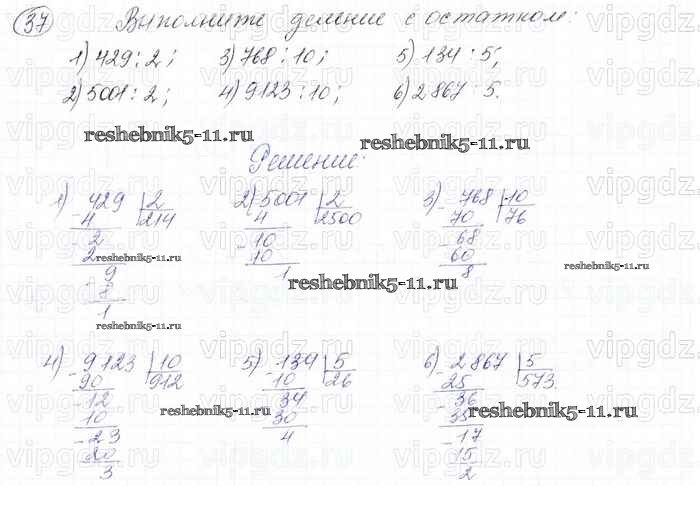 37 Выполните деление с остатком:
1) 429 : 2; 3) 768 : 10; 5) 134 : 5;
2) 5001 : 2; 4) 9123 : 10; 6) 2867 : 5.
reshebnik5-11.ru reshebnik5-11.ru
Решение:
1) 429 2 2) 5001 2 3) 768 10
4 214 4 2500 70 76
2 10 68
2 10 60
reshebnik5-11.ru reshebnik5-11.ru
9 1 8
reshebnik5-11.ru
8
1
reshebnik5-11.ru
4) 9123 10 5) 134 5 6) 2867 5
90 912 10 26 25 573.
12 34 36
10 30 35
reshebnik5-11.ru reshebnik5-11.ru
23 4 17
20 15
3 2